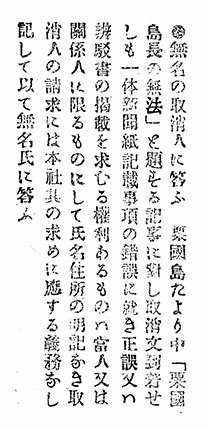 ◉無名の取消人に答ふ　粟國島たより中「粟國
島長の無法」と題せる記事に對し取消文到着せ
しも一体新聞紙記載事項の錯誤に就き正誤又ハ
辨駁書の掲載を求むる權利あるものハ當人又は
關係人に限るものにして氏名住所の明記なき取
消人の請求には本社其の求めに應する義務なし
記して以て無名氏に答ふ